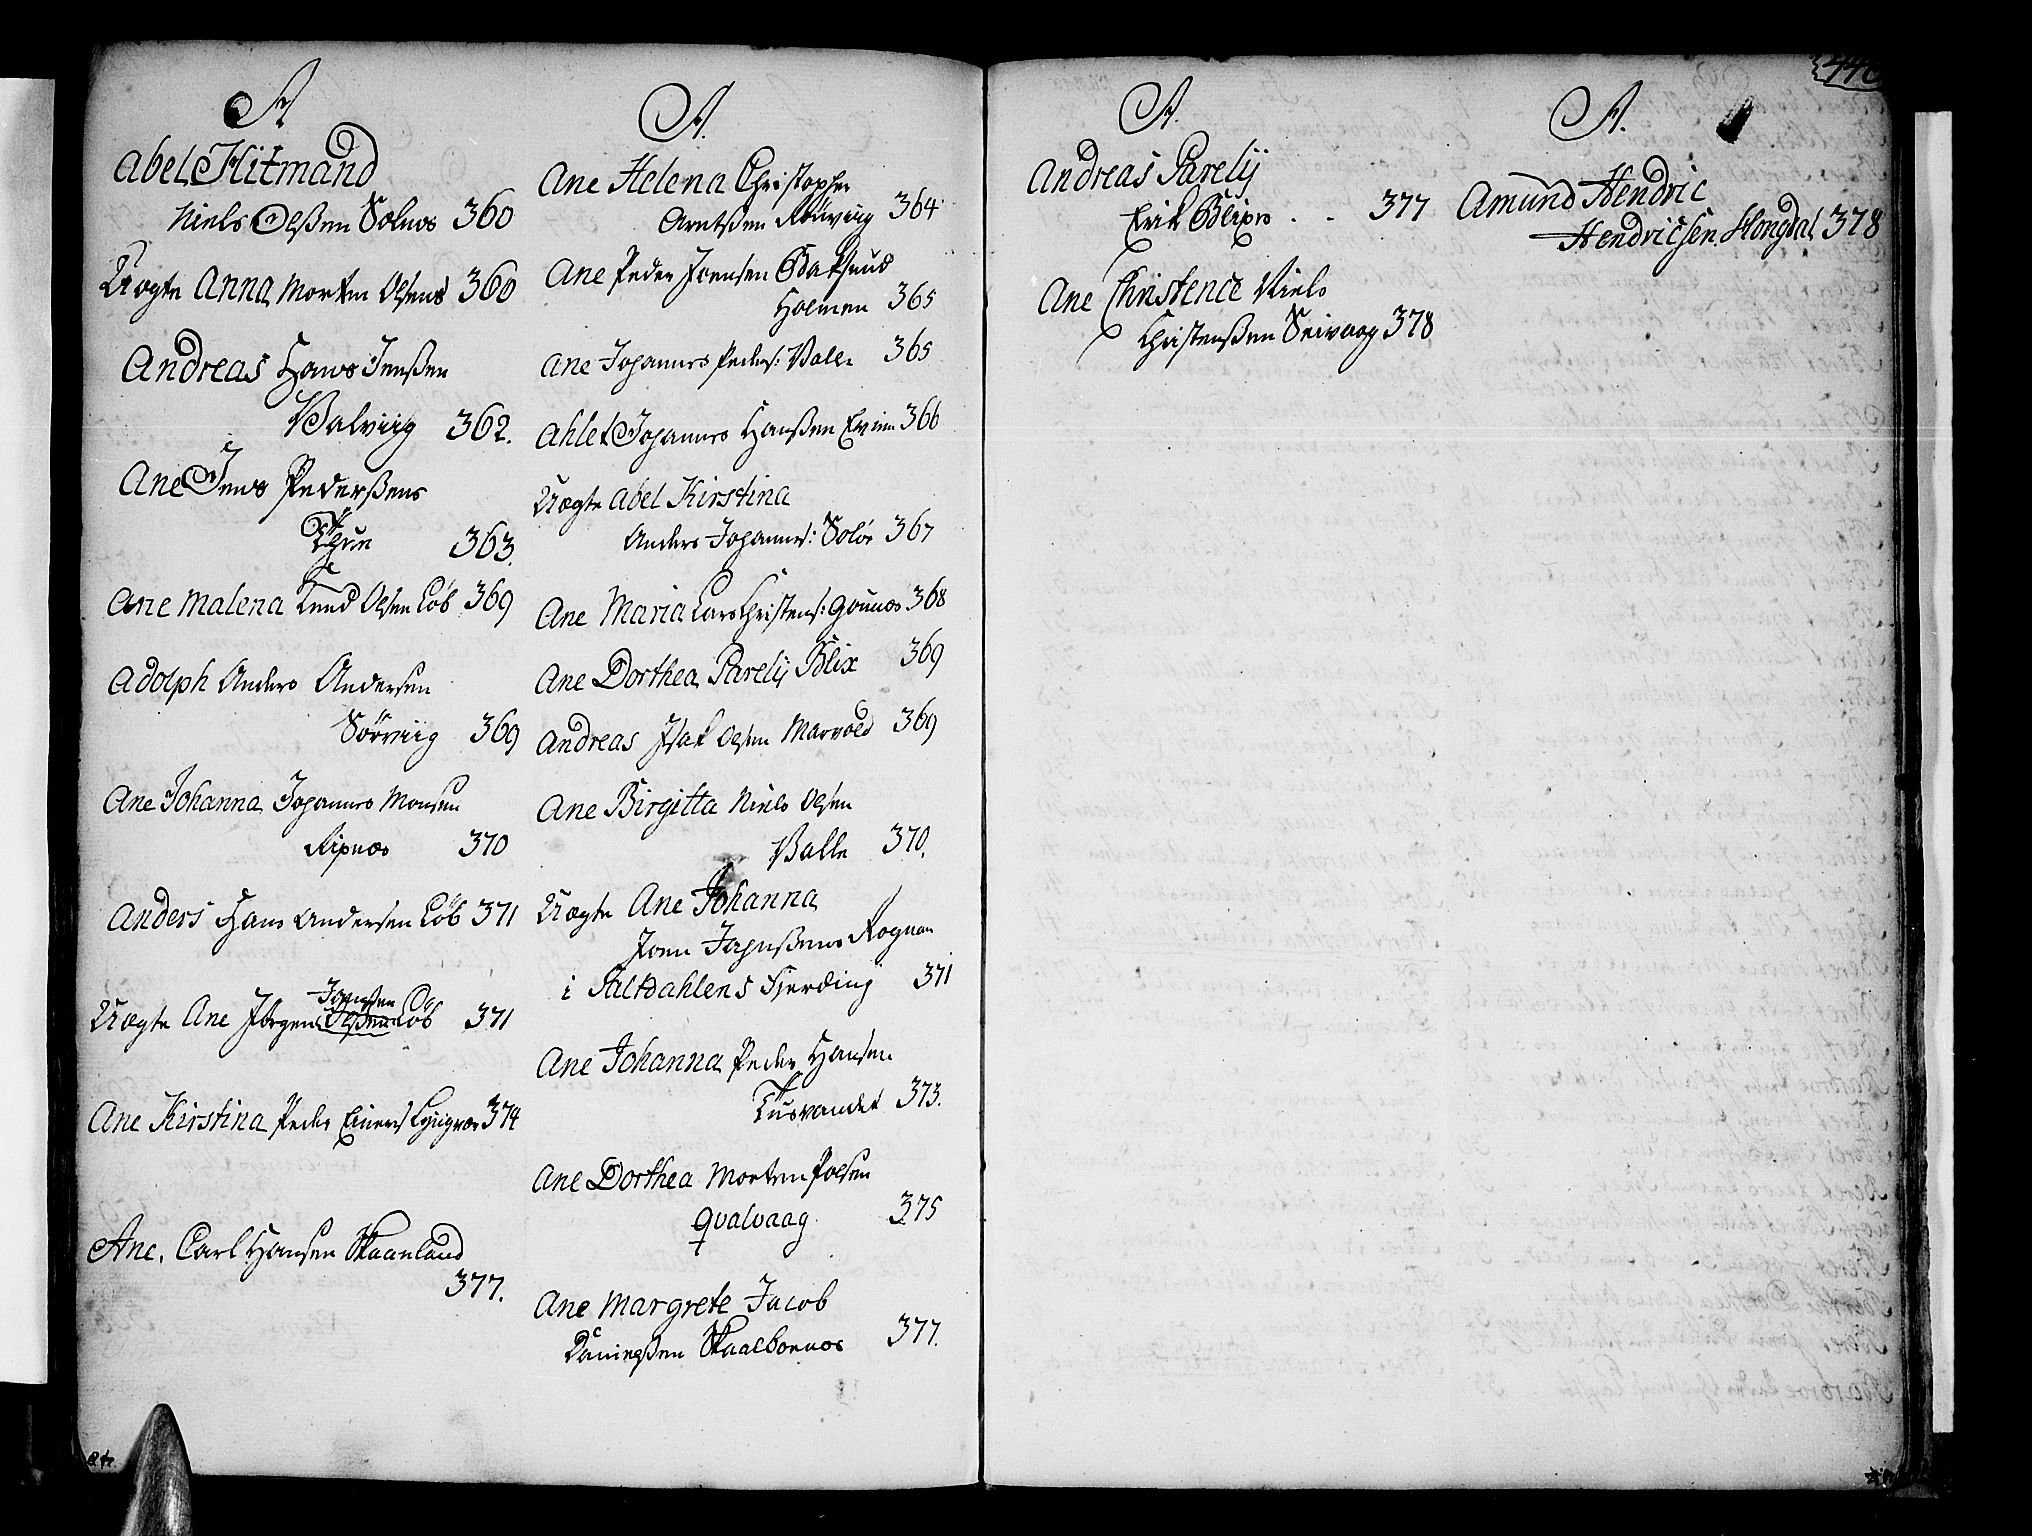 A
Abel Hitmand
Niels Olßen Solnes 360
Uægte Anna Morten Olsens 360
Andreas Hans Jenßen
Valviig 362.
Ane Jens Pederßens
363.
Ane Malena Knud Olsen Løb 369
Adolph Anders Andersen
Sørviig 369
Ane Johanna Johannes Monsen
Ripnes 370
Anders Hans Andersen Løb 371
Jonsßen
Uægte Ane Jørgen Olßen Løb 371
Ane Kirstina Peder Einers Lyngvær 374
Ane. Carl Hansen Skaanland
377.
A.
Ane Helena Christopher
Arntßen Rørviig 364
Ane Peder Joensen Baksund
Holmen 365
Ane Johannes Peders: Valle 365
Ahlet Johannes Hanßen Evien 366
Uægte Abel Kirstina
Anders Johannes: Soløe 367
Ane Maria Lars Christens: Gounes 368
Ane Dorthea Parelÿ Blix 369
Andreas Isak Olsen Marvold 369
Ane Birgitta Niels Olsen
Valle 370.
Uægte Ane Johanna
Joen Rognan
i Saltdahlens Fierding 371
Ane Johanna Peder Hansen
Tusvandet 373.
Ane Dorthea Morten Polsen
Qvalvaag 375
Ane Margrete Jacob
Skaalbones 377.
A.
Andreas Parelÿ
Erik Blixes . . 377
Ane Christence Niels
Christenßen Seivaag 378
A.
Amund Hendric
Hendricsen Hongdal 378